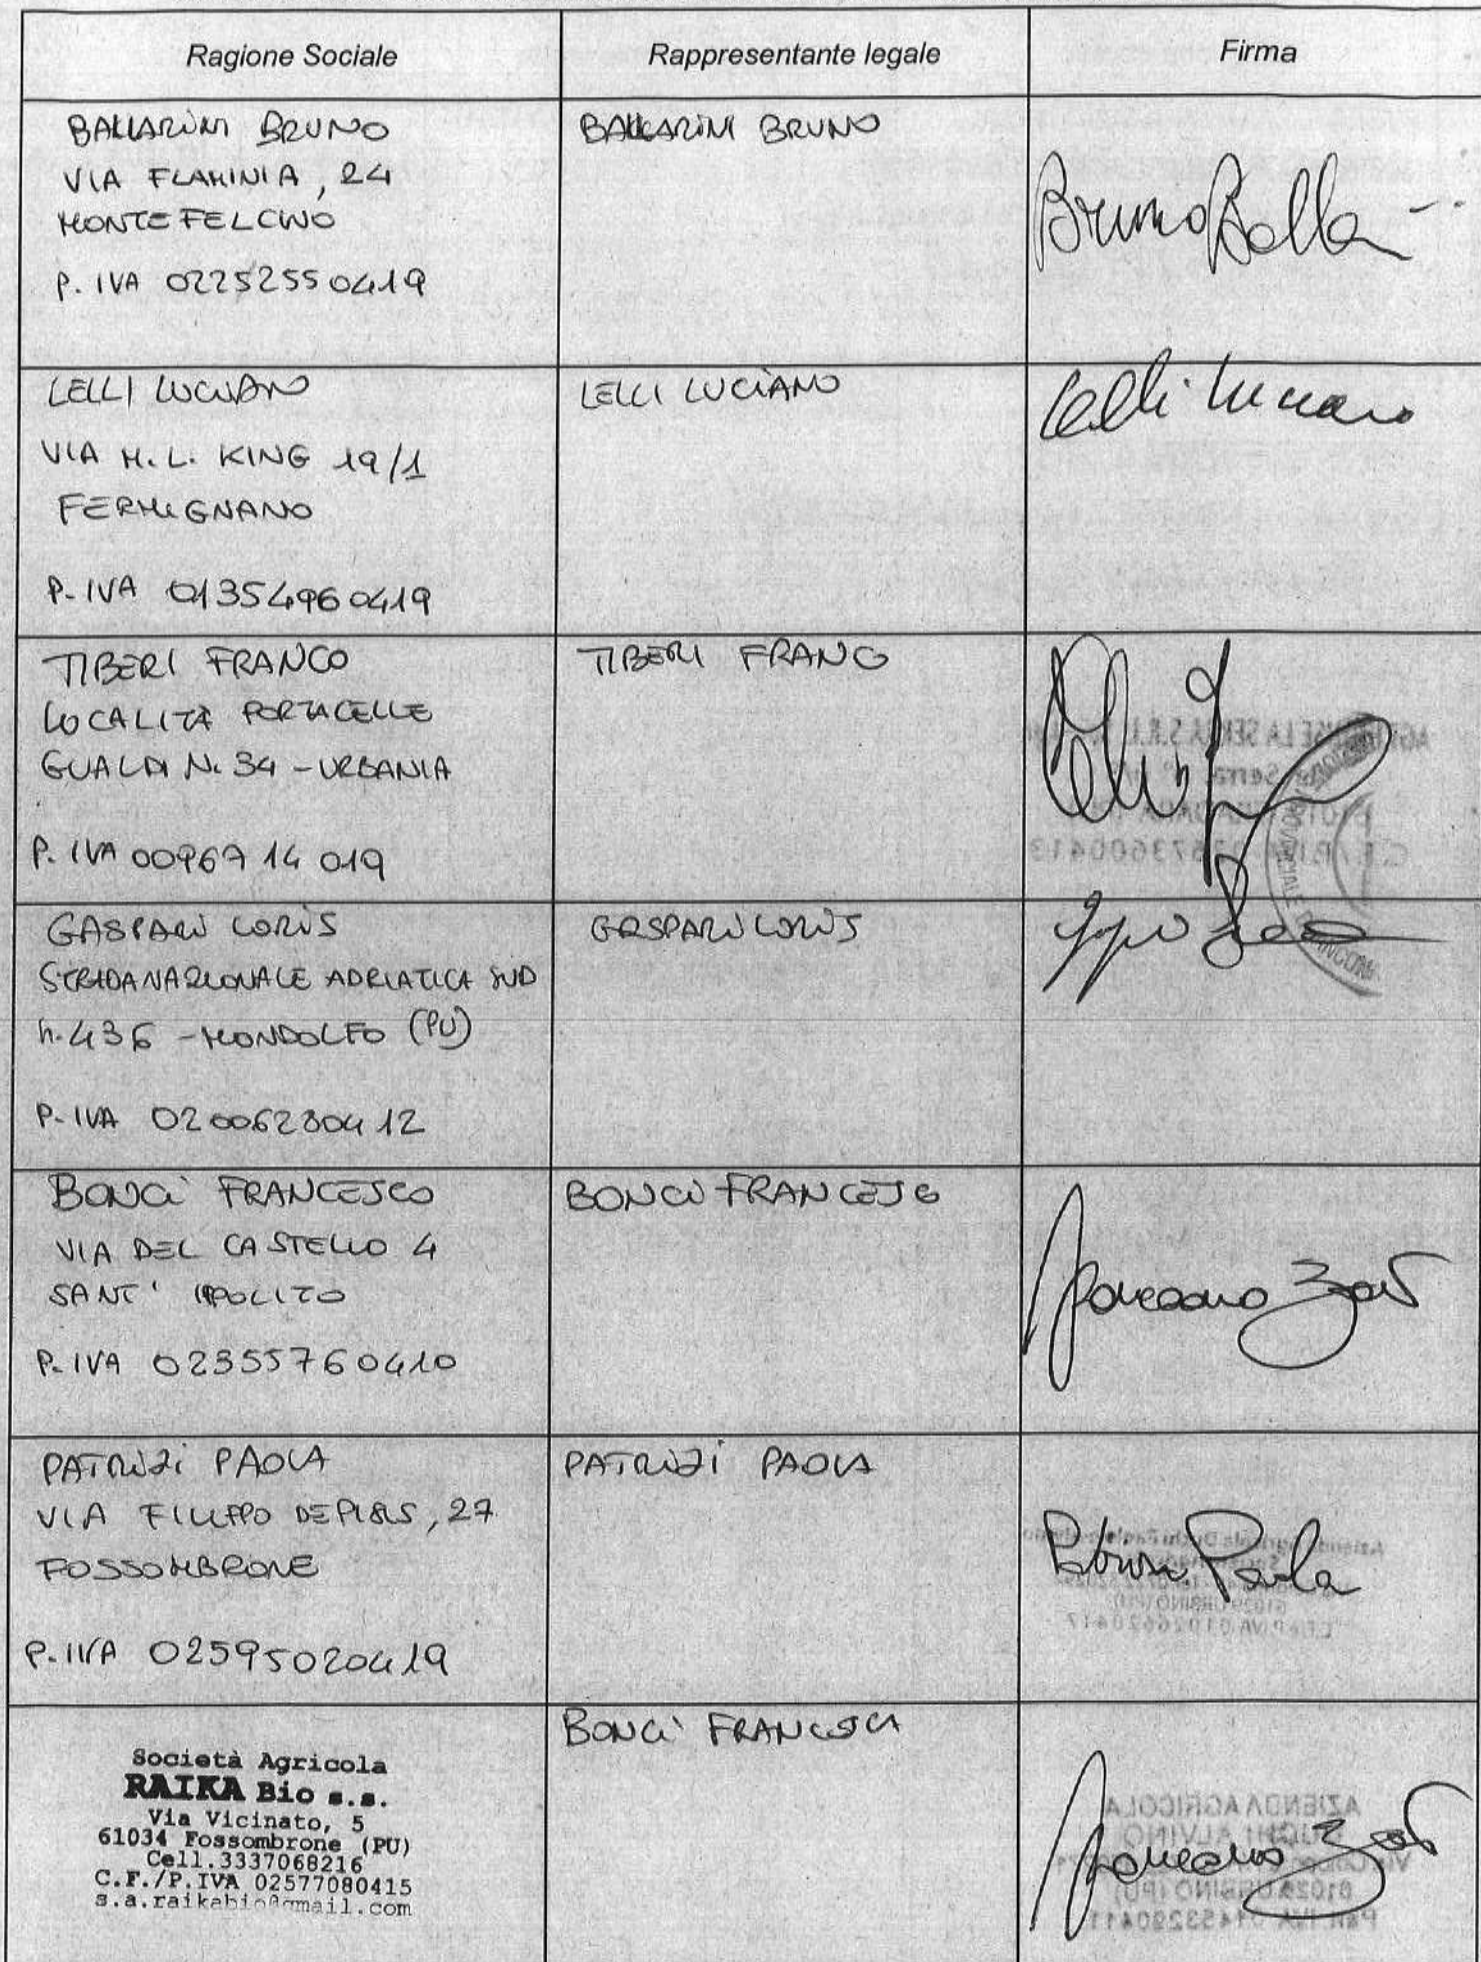 Ragione Sociale
Rappresentante legale
Firma
BALLARINI BRUNO
VIA FLAMINIA, 24
MONTEFELCINO
P. IVA 02252550419
BALLARINI BRUNO
Bruno Balla
LELLI LUCIANO
VIA M.L. KING 19/1
FERMIGNANO
P. IVA 01354960419
LELLI LUCIANO
Lelli Luciano
TIBERI FRANCO
LOCALITÀ PORTACELLE
GUALDI N. 34 - URBANIA
P. IVA 0096714019
TIBERI FRANCO
GASPARI LORIS
STRADA NAZIONALE ADRIATICA SUD
n. 436 - MONDOLFO (PU)
P. IVA 02006230412
GASPARI LORIS
BONCI FRANCESCO
VIA DEL CASTELLO 4
SANT' IPPOLITO
P. IVA 02355760410
BONCI FRANCESCO
PATRIZI PAOLA
VIA FILIPPO DE PISIS, 27
FOSSOMBRONE
P. IVA 02595020419
PATRIZI PAOLA
Patrizi Paola
Società Agricola
RAIKA Bio s.s.
Via Vicinato, 5
61034 Fossombrone (PU)
Cell.3337068216
C.F./P.IVA 02577080415
s.a.raikabio@gmail.com
BONCI